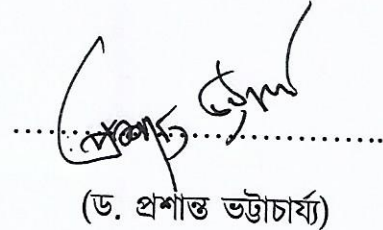 (ড. প্রশান্ত ভট্টাচার্য্য)